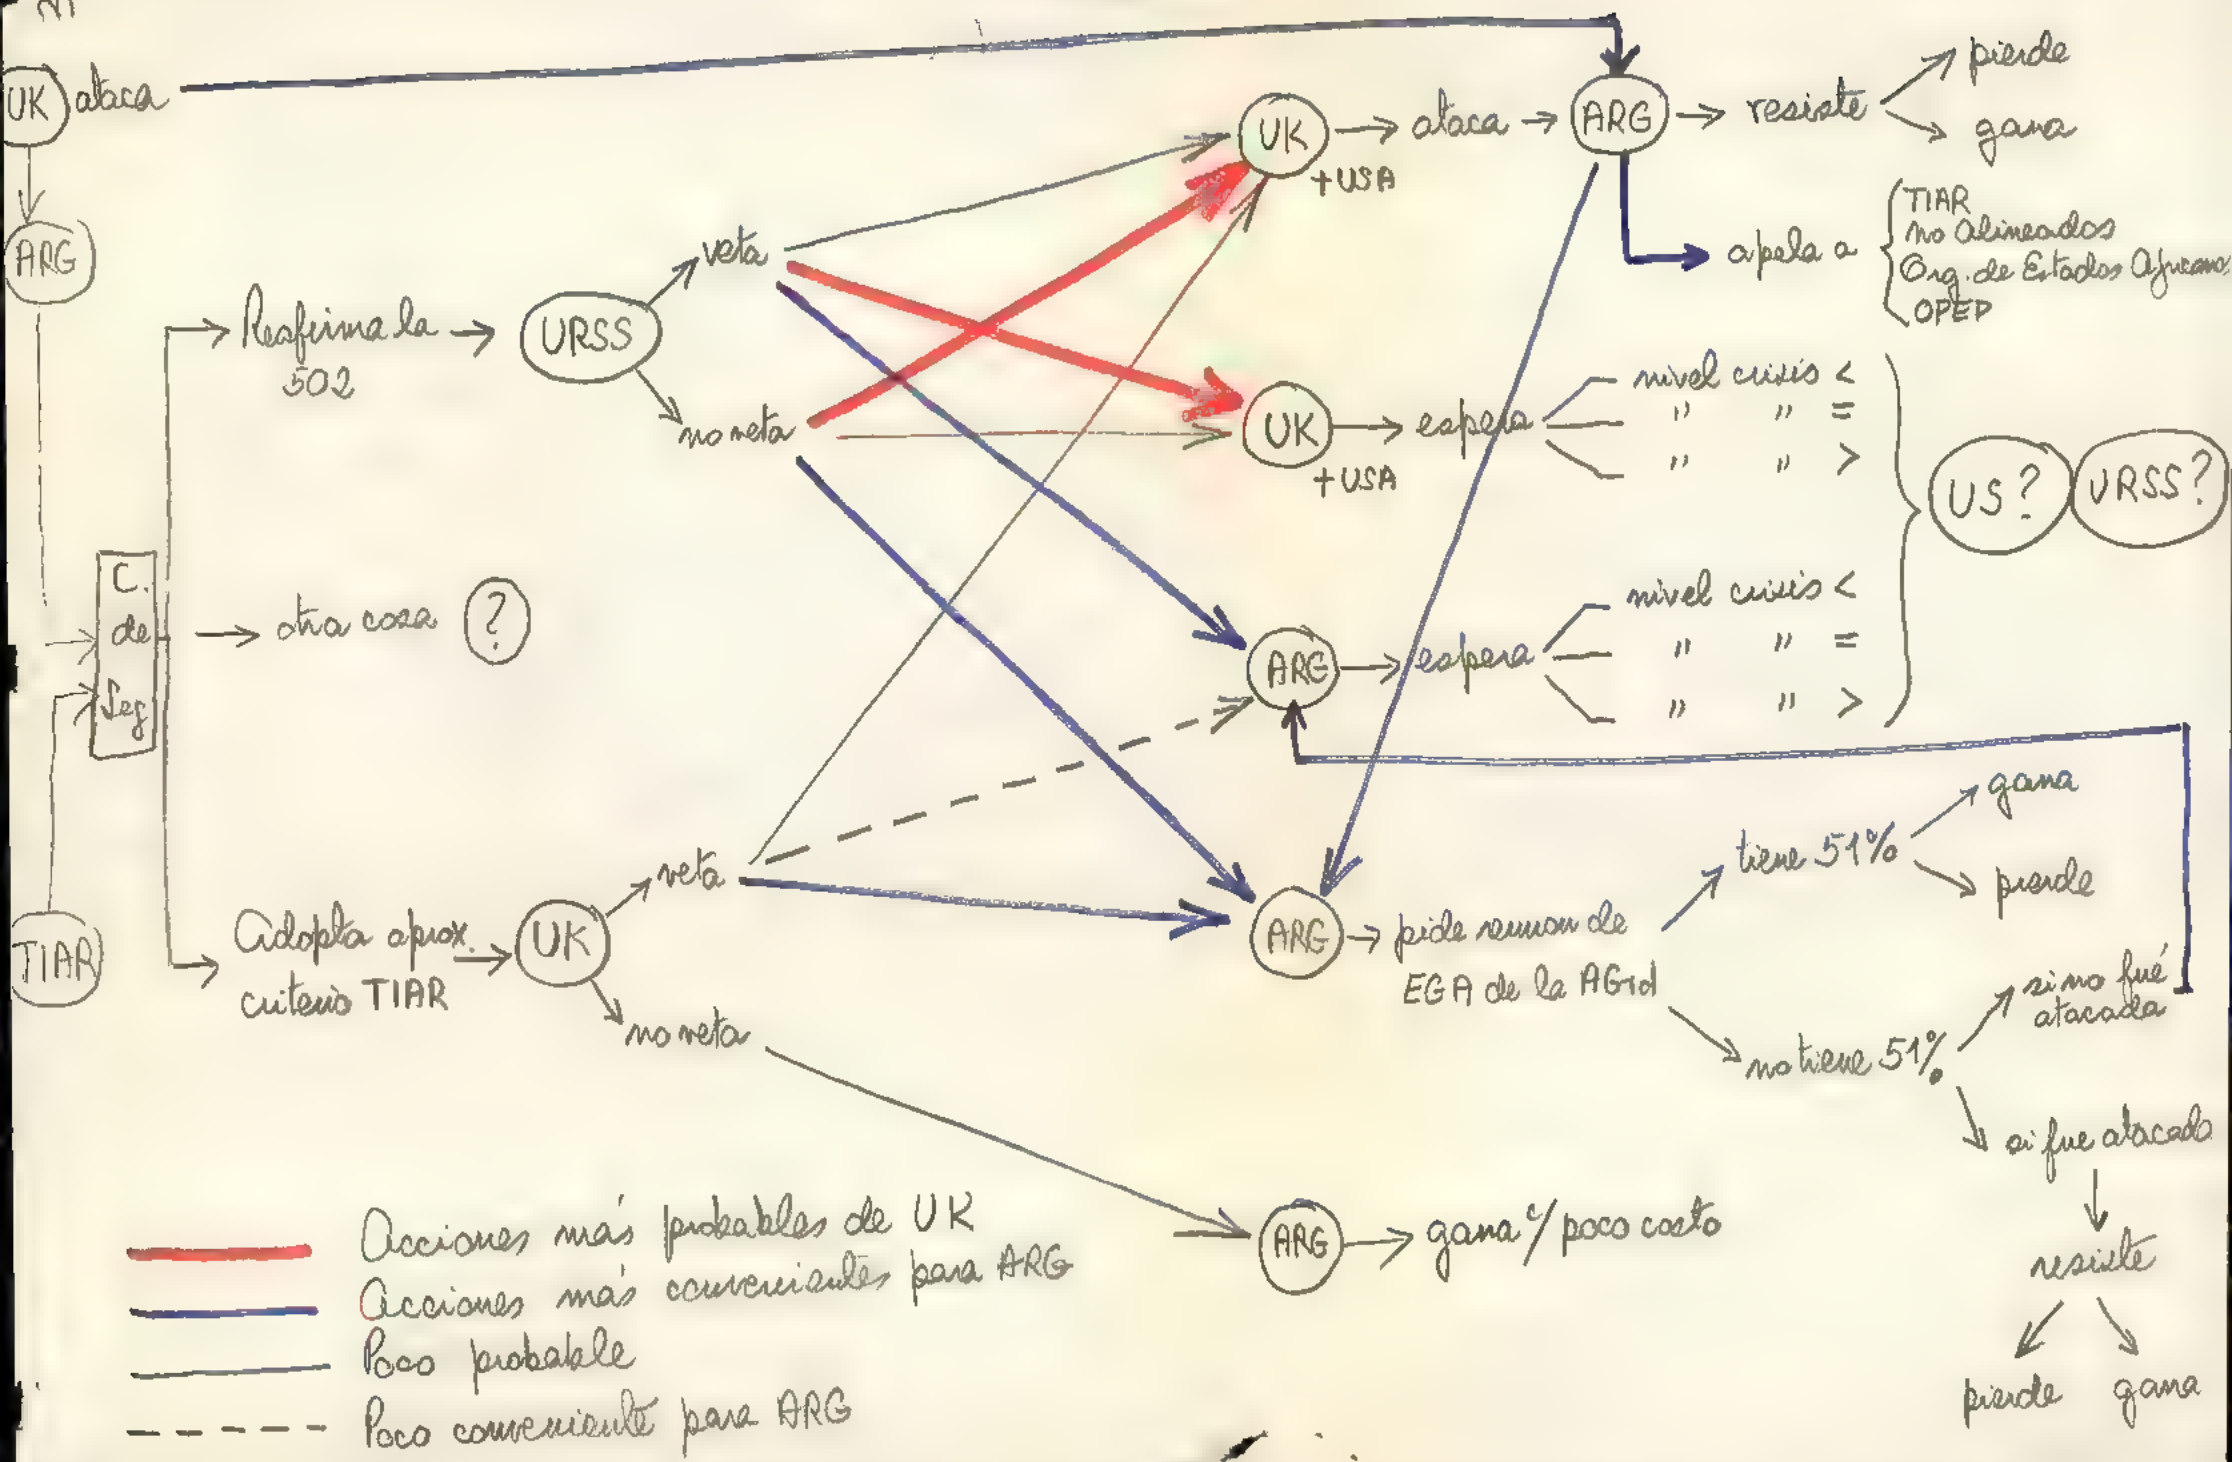 UK ataca
ARG
C.
de
Seg
TIAR
Reafirma la
502
URSS
veta
no veta
otra cosa ?
Adopta aprox.
criterio TIAR
UK
veta
no veta
UK
+USA
ataca
ARG
resiste
pierde
gana
apela a
TIAR
no alineados
Org. de Estados African
OPEP
UK
+USA
espera
nivel crisis <
" " =
" " >
US? URSS?
ARG
espera
nivel crisis <
" " =
" " >
ARG
pide reunion de
EGA de la AG
tiene 51%
gana
pierde
no tiene 51%
si no fué
atacada
si fue atacado
resiste
pierde gana
ARG
gana c/ poco costo
Acciones más probables de UK
Acciones más convenientes para ARG
Poco probable
Poco conveniente para ARG